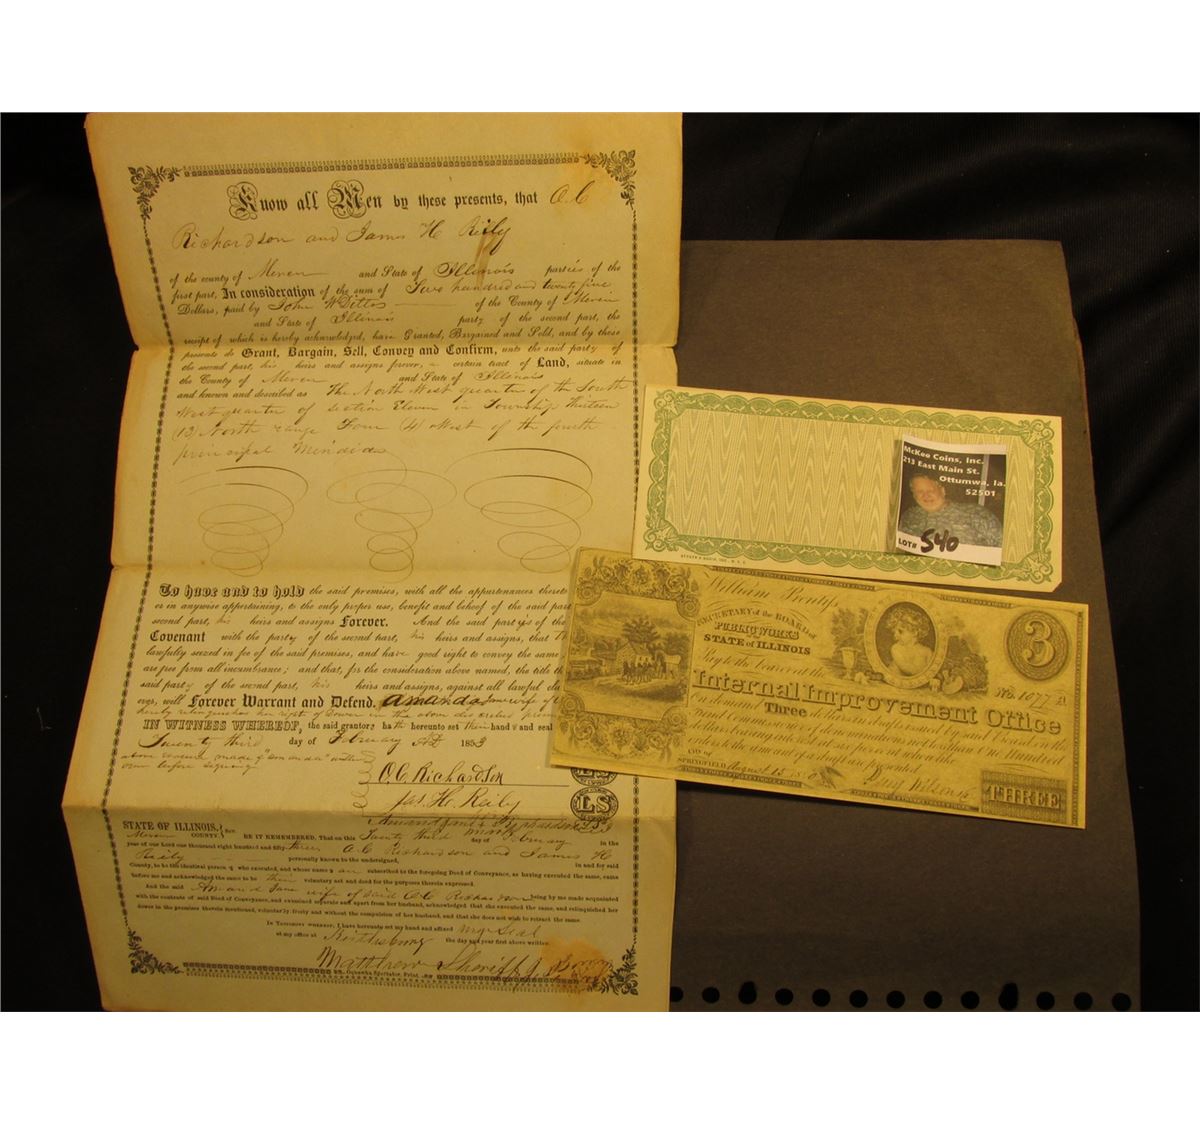 Know all Men by these presents, that O. C
Richardson and James H Reily
of the county of Mercer and State of Illinois parties of the
first part, In consideration of the sum of Two hundred and twenty five
Dollars, paid by John W Dittos of the County of Mercer
and State of Illinois party of the second part, the
receipt of which is hereby acknowledged, have Granted, Bargained and Sold, and by these
presents do Grant, Bargain, Sell, Convey and Confirm, unto the said party of
the second part, his heirs and assigns forever, a certain tract of Land, situate in
the County of Mercer and State of Illinois
and known and described as The North West quarter of the South
West quarter of section Eleven in Township Thirteen
(13) North range Four (4) West of the fourth
principal Meridian
To have and to hold the said premises, with all the appurtenances thereto
or in anywise appertaining, to the only proper use, benefit and behoof of the said part
second part, his heirs and assigns Forever. And the said parties of the
Covenant with the party of the second part, his heirs and assigns, that
lawfully seized in fee of the said premises, and have good right to convey the same
are free from all incumbrance; and that, for the consideration above named, the title
said party of the second part, his heirs and assigns, against all lawful
will Forever Warrant and Defend. Amanda Jane wife of
hereby relinquishes her right of Dower in the above described
IN WITNESS WHEREOF, the said grantors hath hereunto set their hand s and seal
Twenty third day of February AD 1853
above
before signing
O. C. Richardson
Jas. H. Reily
LS
Amand Jane Richardson
STATE OF ILLINOIS,
Mercer COUNTY. BE IT REMEMBERED, That on this Twenty third day of February in the
year of our Lord one thousand eight hundred and fifty-three O. C Richardson and James H
Reily personally known to the undersigned, in and for said
County, to be the identical person s who executed, and whose name s are subscribed to the foregoing Deed of Conveyance, as having executed the same, came
before me and acknowledged the same to be their voluntary act and deed for the purposes therein expressed.
And the said Amand Jane wife of said O C Richardson being by me made acquainted
with the contents of said Deed of Conveyance, and examined separate and apart from her husband, acknowledged that she executed the same, and relinquished her
dower in the premises therein mentioned, voluntarily freely and without the compulsion of her husband, and that she does not wish to retract the same
In Testimony whereof, I have hereunto set my hand and affixed my Seal
at my office at Keithsburg the day and year first above written.
Matthew Sheriff J
Oquawka Spectator, Print
McKee Coins, Inc.
213 East Main St.
Ottumwa, Ia.
52501
LOT# 540
William Prentiss
SECRETARY of the BOARD of
PUBLIC WORKS
STATE of ILLINOIS
Pay to the bearer at the
No. 1077
Internal Improvement Office
On demand Three dollars in drafts issued by said Board on the
Fund Commissioners of denominations not less than One Hundred
dollars bearing interest at six per cent when like
orders to the amount of a draft are presented
CITY OF
SPRINGFIELD August 15
3
THREE